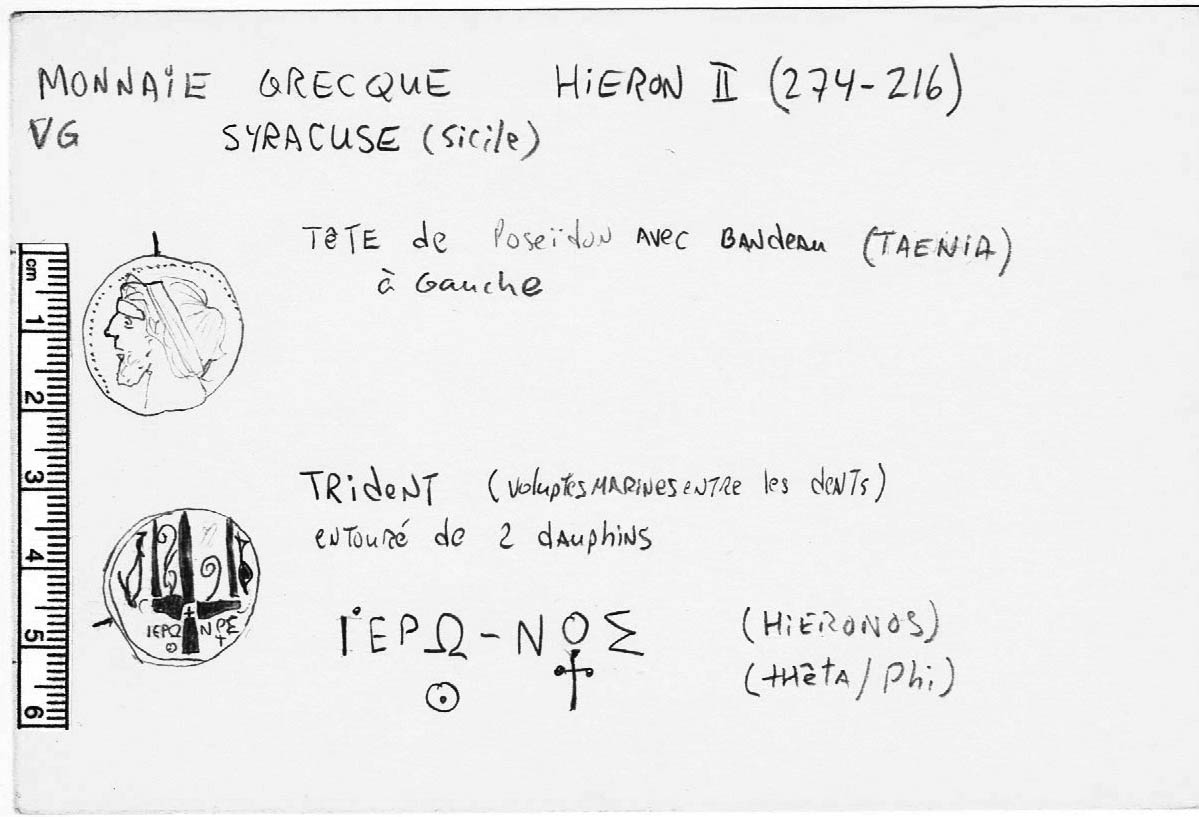 MONNAiE GRECQUE HiERON II (274-216)
VG SYRACUSE (Sicile)
TêTE de Poseïdon AVEC BANdeau (TAENiA)
à Gauche
cm 1 2 3 4 5 6
TRideNT (voluptes MARiNES eNTRe les deNTs)
eNTouré de 2 dAuphiNS
IEPΩ NOΣ
ΙΕΡΩ-ΝΟΣ (HiERONOS)
(tHêtA/Phi)